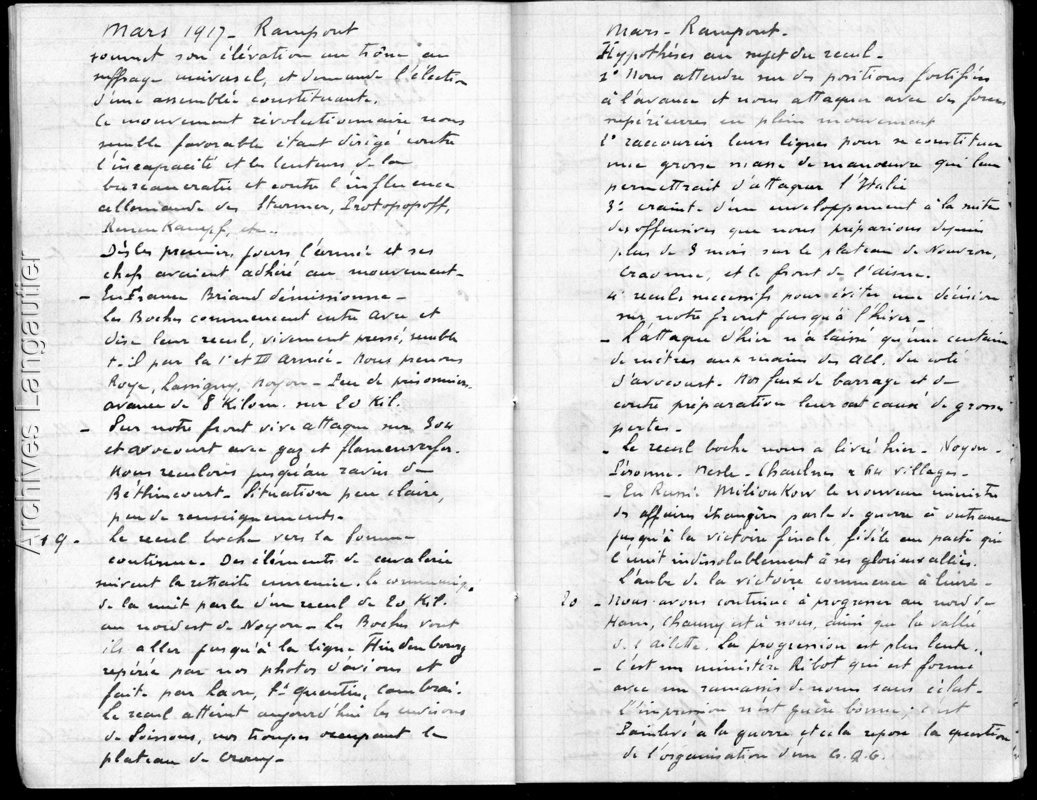 Mars 1917 - Rampont
soumet son élévation au trône au
suffrage universel, et demande l'élection
d'une assemblée constituante.
Ce mouvement révolutionnaire nous
semble favorable étant dirigé contre
l'incapacité et les lenteurs de la
bureaucratie et contre l'influence
allemande des Sturmer, Protopopoff,
RennenKampf, etc..
Dès les premiers jours l'armée et ses
chefs avaient adhéré au mouvement -
- En France Briand démissionne -
Les Boches commencent entre Avre et
Oise leur recul, vivement pressé, semble
t-il par la 1e et III armée - Nous prenons
Roye, Lassigny, Noyon - Peu de prisonniers.
avance de 8 Kilom. sur 20 Kil.
- Sur notre front vive attaque sur 304
et avocourt avec gaz et flamenwerfer.
Nous reculons jusqu'au ravin de
Béthincourt - Situation peu claire,
peu de renseignements -
19 - Le recul boche vers la Somme
continue. Des éléments de cavalerie
suivent la retraite ennemie. Le communiqué
de la nuit parle d'un recul de 20 Kil.
au nord est de Noyon - Les Boches vont
ils aller jusqu'à la ligne Hindenbourg
repérée par nos photos d'avions et
fait par Laon, St quentin, Cambrai.
Le recul atteint aujourd'hui les environs
de Soissons, nos troupes occupant le
plateau de Crouy -
Mars - Rampont -
Hypothéses au sujet du recul -
1° Nous attendre sur des positions fortifiées
à l'avance et nous attaquer avec des forces
supérieures en plein mouvement
2° raccourcir leurs lignes pour se constituer
une grosse masse de manoeuvre qui leur
permettrait d'attaquer l'Italie
3° crainte d'un enveloppement à la suite
des offensives que nous préparions depuis
plus de 3 mois sur le plateau de Nouvron,
Craonne, et le front de l'aisne.
4° reculs successifs pour éviter une décision
sur notre front jusqu'à l'hiver -
- L'attaque d'hier n'a laissé qu'une centaine
de mètres aux mains des All. du coté
d'avocourt - Nos feux de barrage et de
contre préparation leur ont causé de grosses
pertes -
- Le recul boche nous a livré hier - Noyon -
Péronne - Nesle - Chaulnes & 60 villages -
- En Russie MiliouKow le nouveau ministre
des affaires étrangère parle de guerre à outrance
jusqu'à la victoire finale, fidèle au pacte qui
l'unit indissolublement à ses glorieux alliés.
L'aube de la victoire commence à luire -
20 - Nous avons continué à progresser au nord de
Ham, Chauny est à nous, ainsi que la vallée
de l'Ailette. La progression est plus lente.
- C'est un ministère Ribot qui est formé
avec un ramassis de noms sans éclat -
L'impression n'est guère bonne ; c'est
Painlevé à la guerre et cela repose la question
de l'organisation d'un G.Q.G.
Archives Langautier